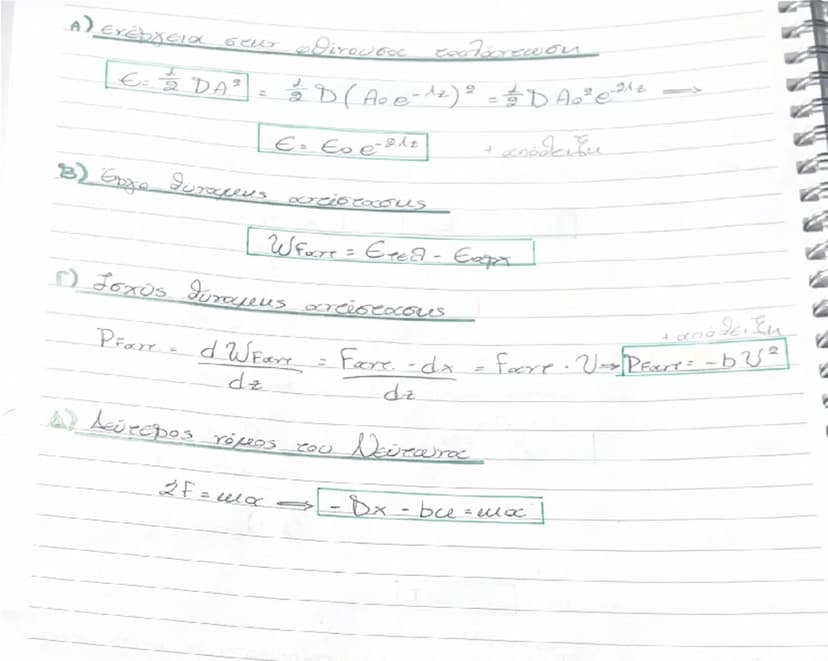 Α) Ενέργεια στην φθίνουσα ταλάντωση
Ε = 1/2 DA² = 1/2 D(A₀e^-Λt)² = 1/2 DA₀²e^-2Λt →
Ε = Ε₀e^-2Λt + απόδειξη
Β) Έργο δύναμης αντίστασης
WFαντ = Ετελ - Εαρχ
Γ) Ισχύς δύναμης αντίστασης
+ απόδειξη
PFαντ. = dWFαντ/dt = Fαντ. · dx/dt = Fαντ · υ ⇒ PFαντ = -bυ²
Δ) Δεύτερος νόμος του Νεύτωνα
ΣF = mα ⇒ -Dx - bυ = mα